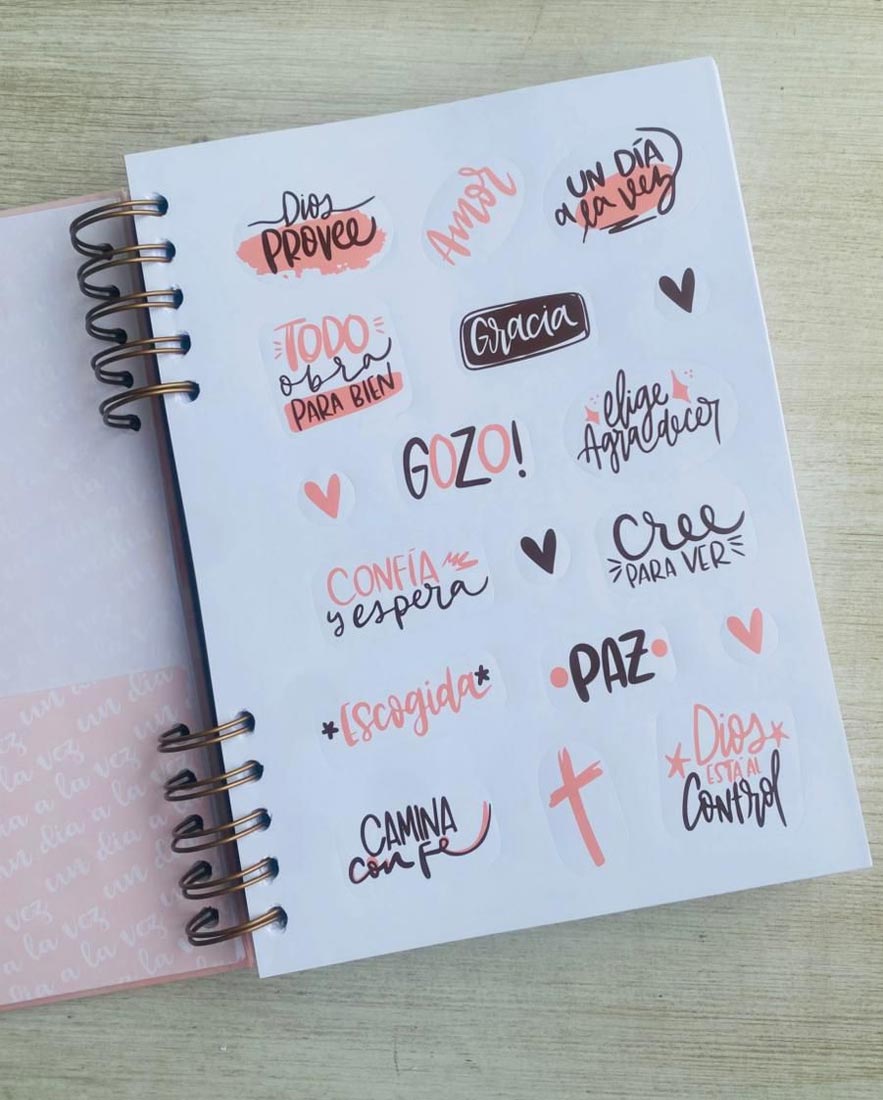 Dios
PROVEE
Amor
UN DÍA
a la vez
TODO
obra
PARA BIEN
Gracia
elige
Agradecer
GOZO!
CONFÍA
y espera
Cree
PARA VER
*Escogida*
•PAZ•
Dios
ESTÁ AL
Control
CAMINA
con Fe
un día a la vez
un día a la vez
a la vez un día
a la vez
un día a la vez
vez un día
a la vez
día a la vez